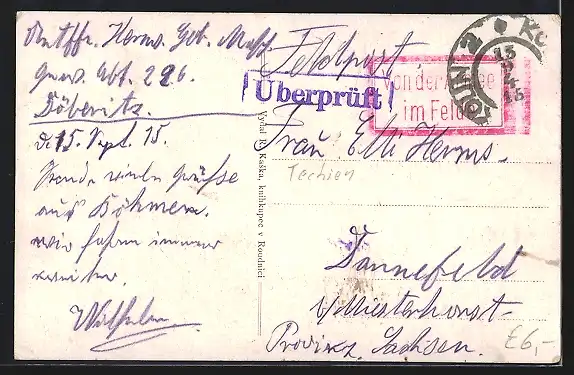 Untffz. Herms. Geb. Masch.
Gew. Abt. 226.
Döberitz.
d. 15. Sept. 15.
Sende viele Grüße
aus Böhmen.
wir fahren immer
weiter.
Wilhelm
Vydal R. Kaška, knihkupec v Roudnici
Feldpost
Überprüft
von der Armee
im Felde
KOLIN 2
15
15
Frau Elli Herms.
Techien
Dannefeld
b/Miesterhorst.
Provinz. Sachsen.
£6,-